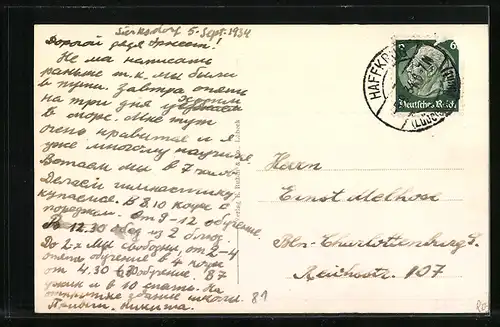 Sierksdorf 5. Sept. 1934
Дорогой дядя Эрнест!
Не мог написать
раньше т.к. мы были
в пути. Завтра опять
на три дня уходим
в море. Мне тут
очень нравится и я
уже многому научился.
Встаем мы в 7 часов.
Делаем гимнастику,
купаемся. В 8.10 кофе с
9-12 обучение.
В 12.30 обед из 2 блюд.
До 2-х мы свободны, от 2-4
опять обучение в 4 кофе
от 4.30 обучение. В 7
ужин и в 10 спать. На
здание школы.
Привет. Никита.
81
Herrn
Ernst Melhose
Bln-Charlottenburg 9.
Reichsstr. 107
HAFFKRUG
(LÜBECK)
6
Deutsches Reich